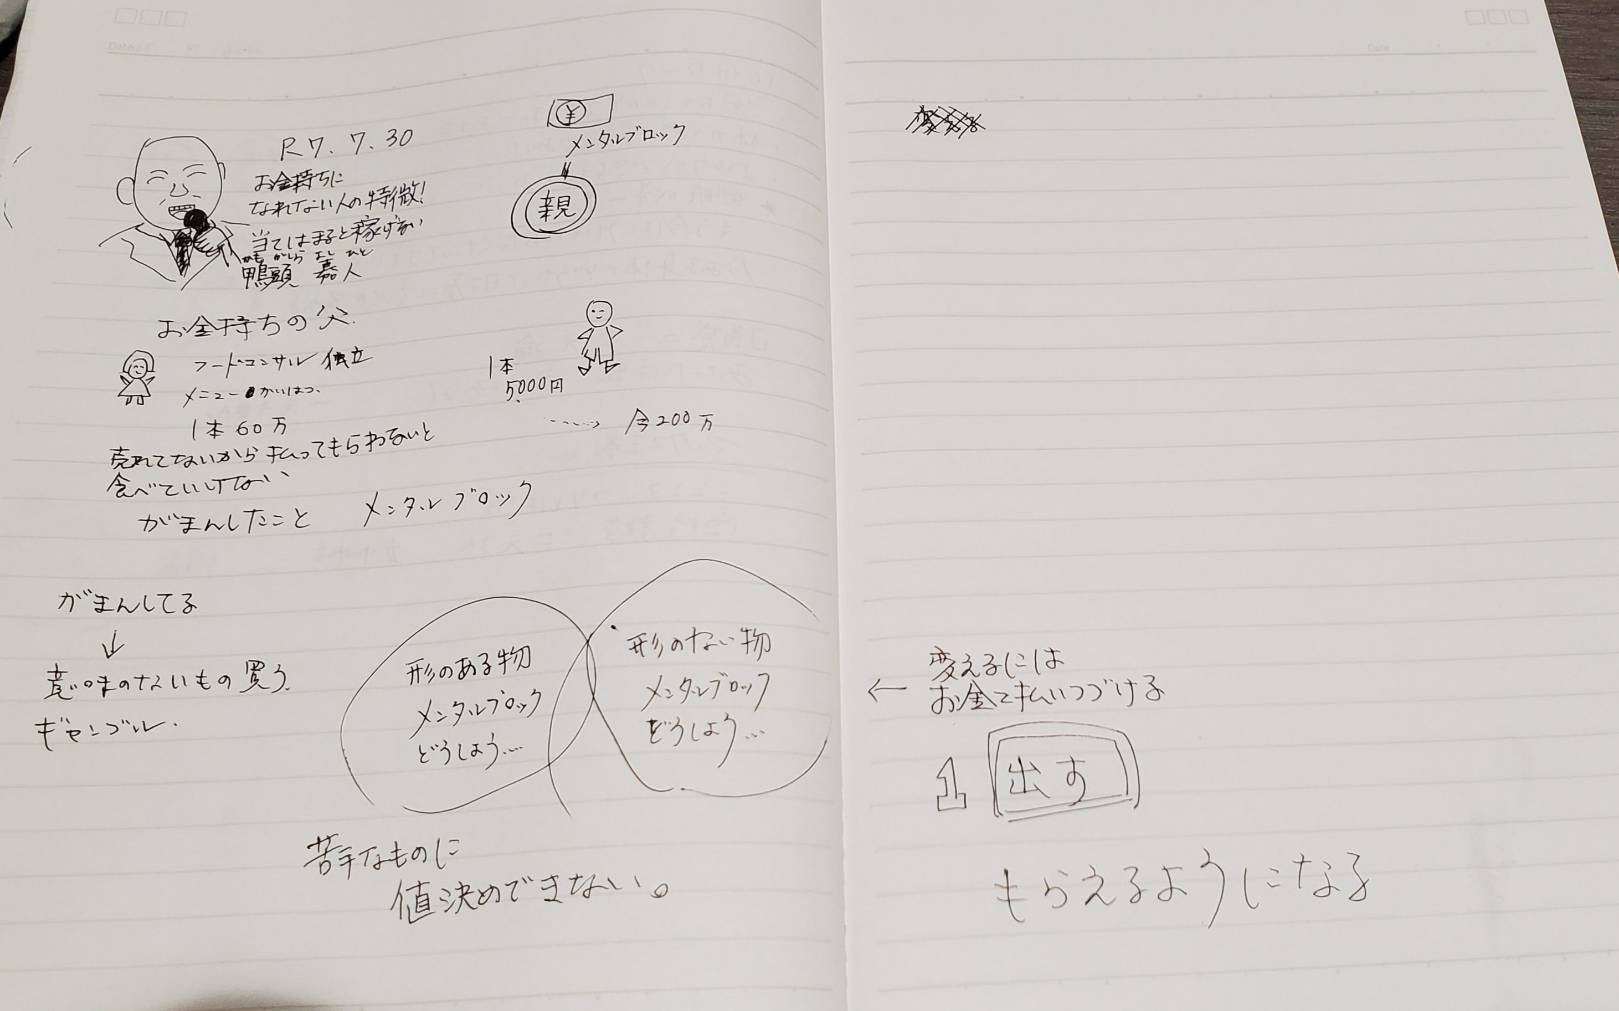 R7.7.30
お金持ちに
なれない人の特徴!
当てはまると稼げない
かもがしら よし ひと
鴨頭 嘉人
¥
メンタルブロック
親
お金持ちの父.
フードコンサル 独立
メニューかいはつ.
1本60万
売れてないから払ってもらわないと
食べていけない
がまんしたこと メンタルブロック
1本
5000円
今200万
がまんしてる
↓
意味のないもの買う.
ギャンブル.
形のある物
メンタルブロック
どうしよう...
形のない物
メンタルブロック
どうしよう...
苦手なものに
値決めできない。
Date
← 変えるには
お金て払いつづける
1 出す
もらえるようになる